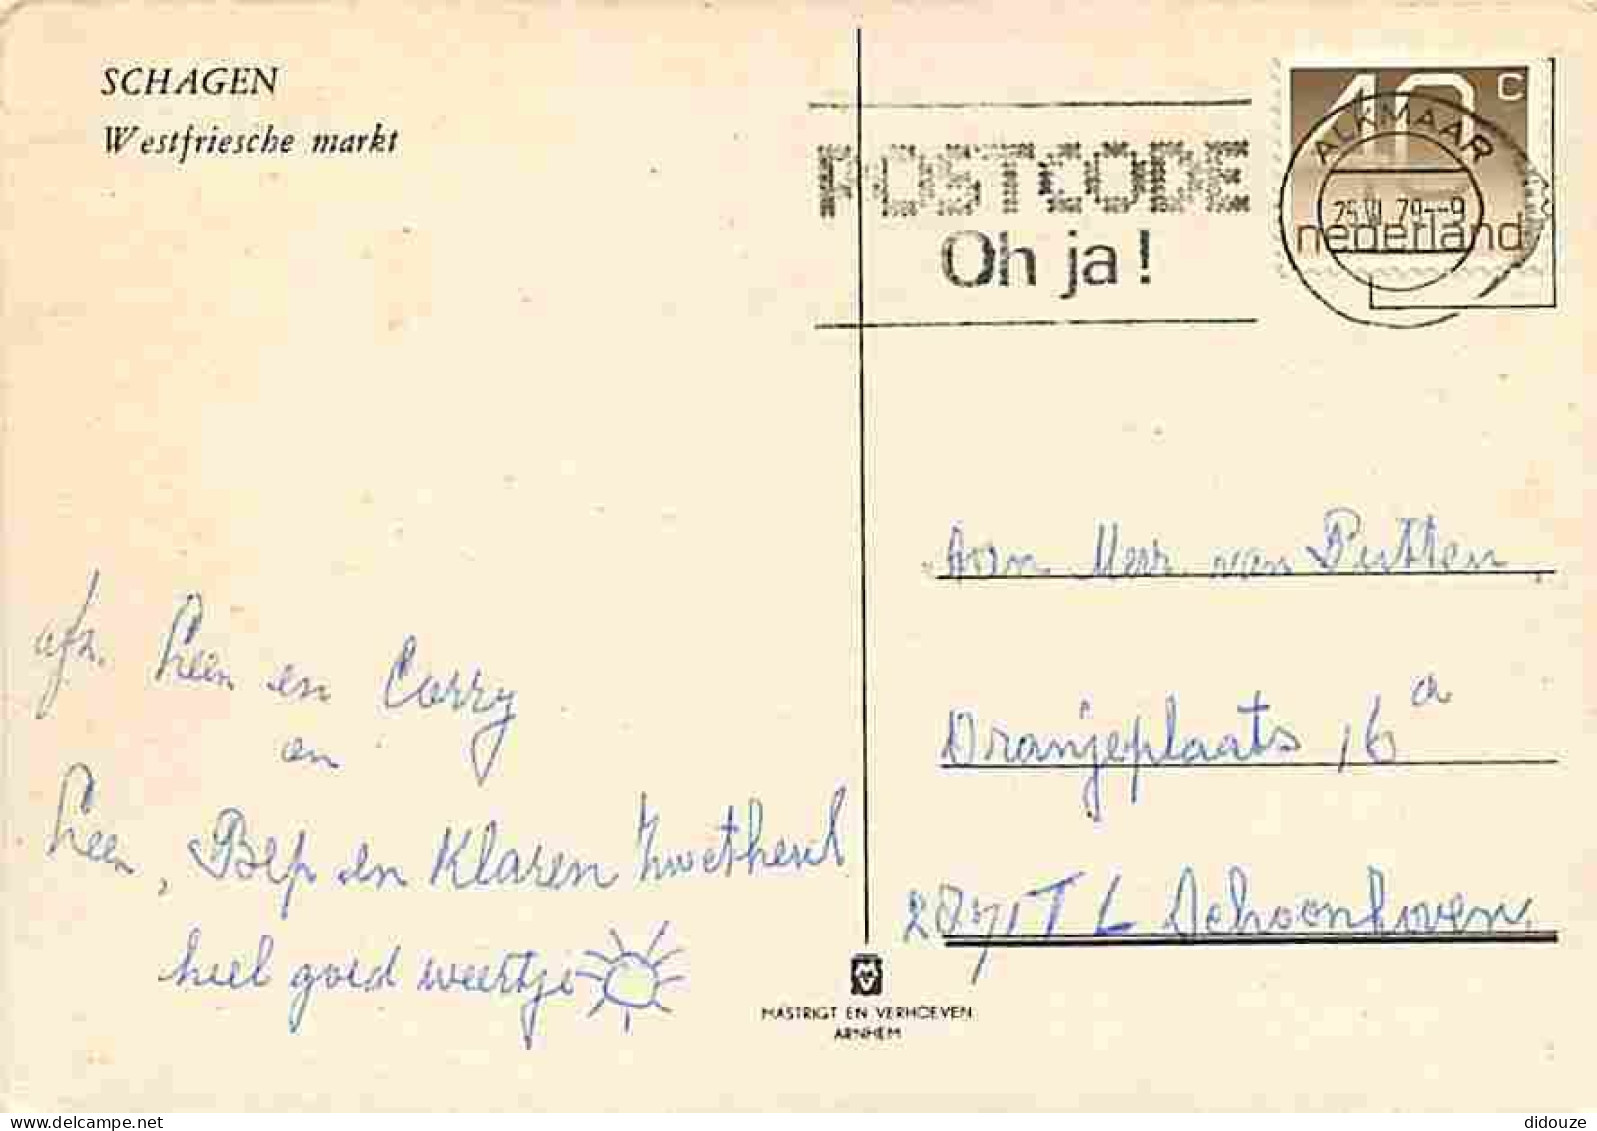 SCHAGEN
Westfriesche markt
POSTCODE
Oh ja!
40 c
ALKMAAR
25 VII 79--9
nederland
Aan Mevr. van Putten
Oranjeplaats 16 a
2871 TL Schoonhoven
afz. Leen en Corry
en
Leen, Bep en Klaren
heel goed weertje
MASTRIGT EN VERHOEVEN
ARNHEM
didouze